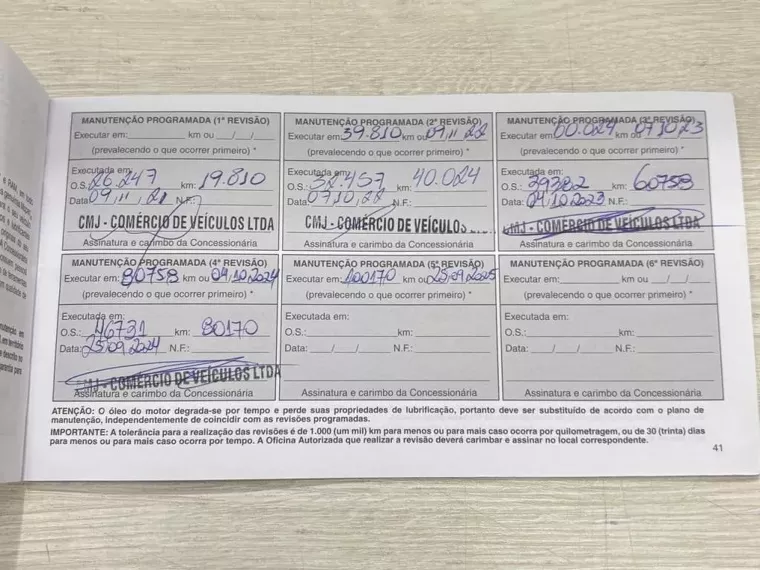 MANUTENÇÃO PROGRAMADA (1ª REVISÃO)
Executar em: km ou / /
(prevalecendo o que ocorrer primeiro) *
Executada em:
O.S.: 26.247 km: 19.810
Data: 09, 11, 21 N.F.:
CMJ - COMÉRCIO DE VEÍCULOS LTDA
Assinatura e carimbo da Concessionária
MANUTENÇÃO PROGRAMADA (2ª REVISÃO)
Executar em: 39.810 km ou 09.11.22
(prevalecendo o que ocorrer primeiro) *
Executada em:
O.S.: 32.457 km: 40.024
Data: 07,10,22 N.F.:
CMJ - COMÉRCIO DE VEÍCULOS
Assinatura e carimbo da Concessionária
MANUTENÇÃO PROGRAMADA (3ª REVISÃO)
Executar em: 60.024 km ou 07.10.23
(prevalecendo o que ocorrer primeiro) *
Executada em:
O.S.: 39382 km: 60758
Data: 04.10.2023 N.F.:
CMJ - COMÉRCIO DE VEÍCULOS LTDA
Assinatura e carimbo da Concessionária
MANUTENÇÃO PROGRAMADA (4ª REVISÃO)
Executar em: 80758 km ou 04.10.2024
(prevalecendo o que ocorrer primeiro) *
Executada em:
O.S.: 46731 km: 80170
Data: 25.09.2024 N.F.:
CMJ - COMÉRCIO DE VEÍCULOS LTDA
Assinatura e carimbo da Concessionária
MANUTENÇÃO PROGRAMADA (5ª REVISÃO)
Executar em: 100170 km ou 25.09.2025
(prevalecendo o que ocorrer primeiro) *
Executada em:
O.S.: km:
Data: / / N.F.:
Assinatura e carimbo da Concessionária
MANUTENÇÃO PROGRAMADA (6ª REVISÃO)
Executar em: km ou / /
(prevalecendo o que ocorrer primeiro) *
Executada em:
O.S.: km:
Data: / / N.F.:
Assinatura e carimbo da Concessionária
ATENÇÃO: O óleo do motor degrada-se por tempo e perde suas propriedades de lubrificação, portanto deve ser substituído de acordo com o plano de
manutenção, independentemente de coincidir com as revisões programadas.
IMPORTANTE: A tolerância para a realização das revisões é de 1.000 (um mil) km para menos ou para mais caso ocorra por quilometragem, ou de 30 (trinta) dias
para menos ou para mais caso ocorra por tempo. A Oficina Autorizada que realizar a revisão deverá carimbar e assinar no local correspondente.
41